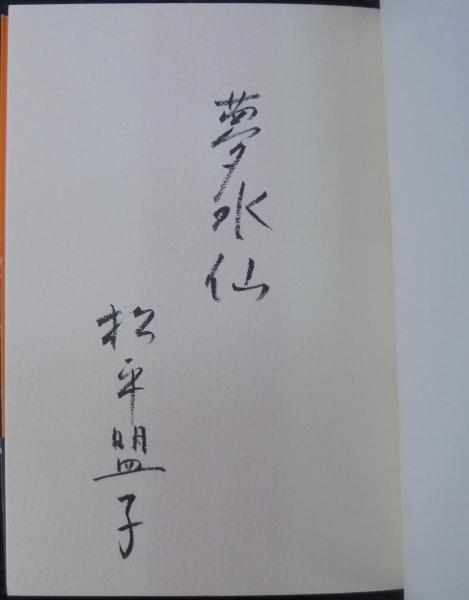 夢水仙
松平盟子